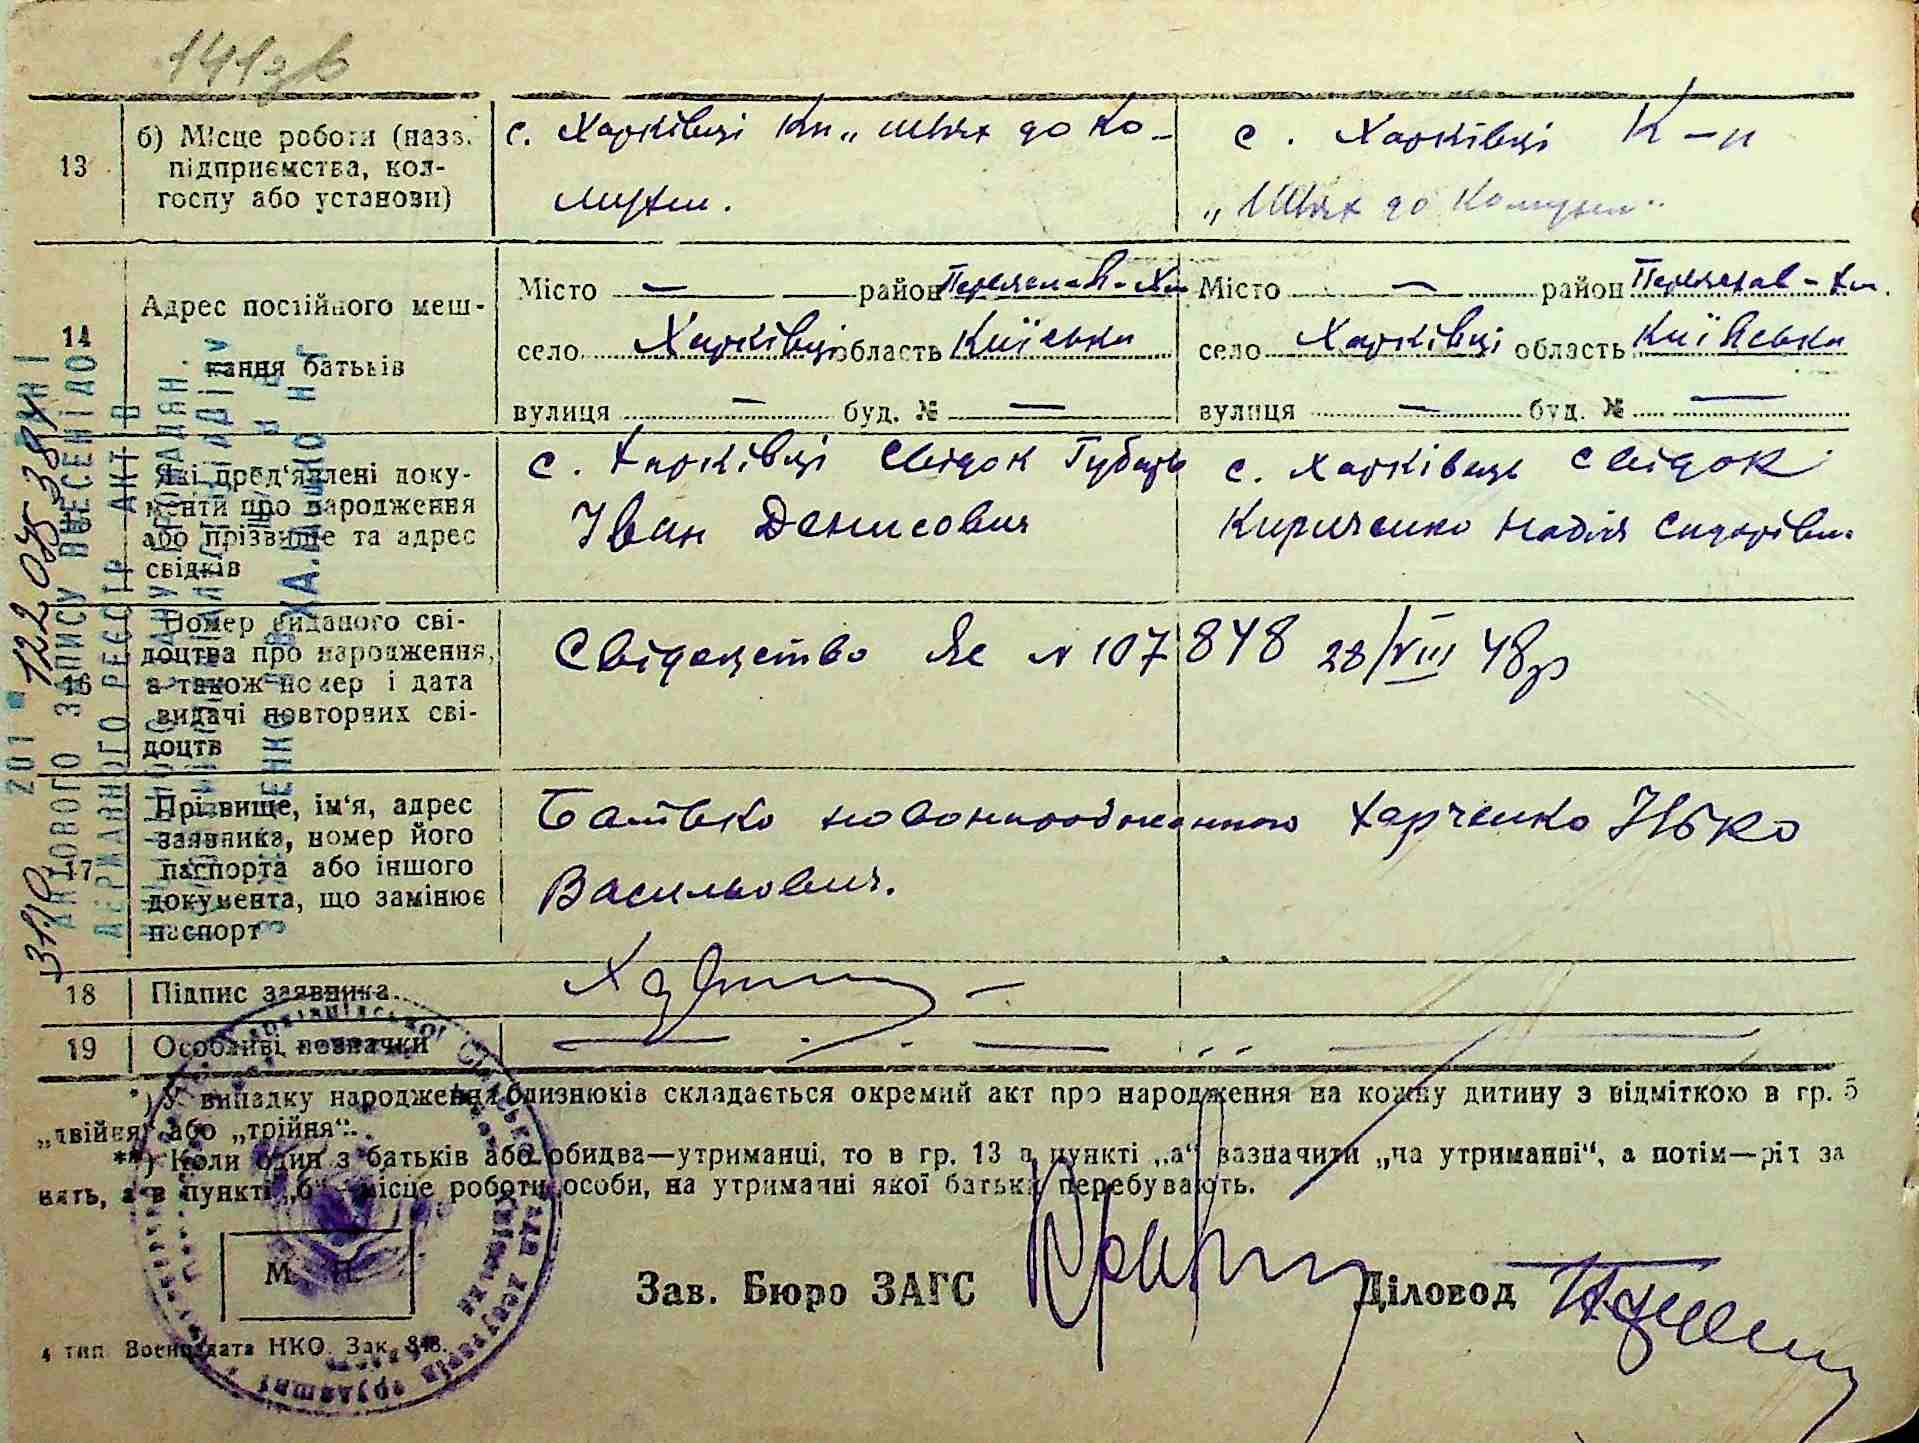 141зв
13
б) Місце роботи (назв. підприємства, колгоспу або установи)
с. Харківці К-п „Шлях до Ко-
муни.
с. Харківці К-п
„Шлях до Комуни"
14
Адрес постійного меш-
кання батьків
Місто — район Переяслав-Хм
село Харківці область Київська
вулиця — буд. № —
Місто — район Переяслав-Хм.
село Харківці область Київська
вулиця — буд. № —
15
Які пред'явлені доку-
менти про народження
або прізвище та адрес
свідків
с. Харківці Свідок Губарь
Іван Денисович
с. Харківець свідок
Кириченко Надія Сидорівн.
16
Номер виданого сві-
доцтва про народження,
а також номер і дата
видачі повторних сві-
доцтв
Свідецтво Яе № 107848 28/VIII 48р
17
Прізвище, ім'я, адрес
заявника, номер його
паспорта або іншого
документа, що замінює
паспорт
Батько новонародженного Харченко Ілько
Васильович.
18
Підпис заявника
19
Особливі позначки
*) У випадку народження близнюків складається окремий акт про народження на кожну дитину з відміткою в гр. 5
„двійня" або „трійня".
**) Коли один з батьків або обидва—утриманці, то в гр. 13 в пункті „а" зазначити „на утриманні", а потім—ріт за
нять, а в пункті „б" місце роботи особи, на утриманні якої батьки перебувають.
М. П.
Зав. Бюро ЗАГС
Діловод
4 тип. Воениздата НКО. Зак. 848.